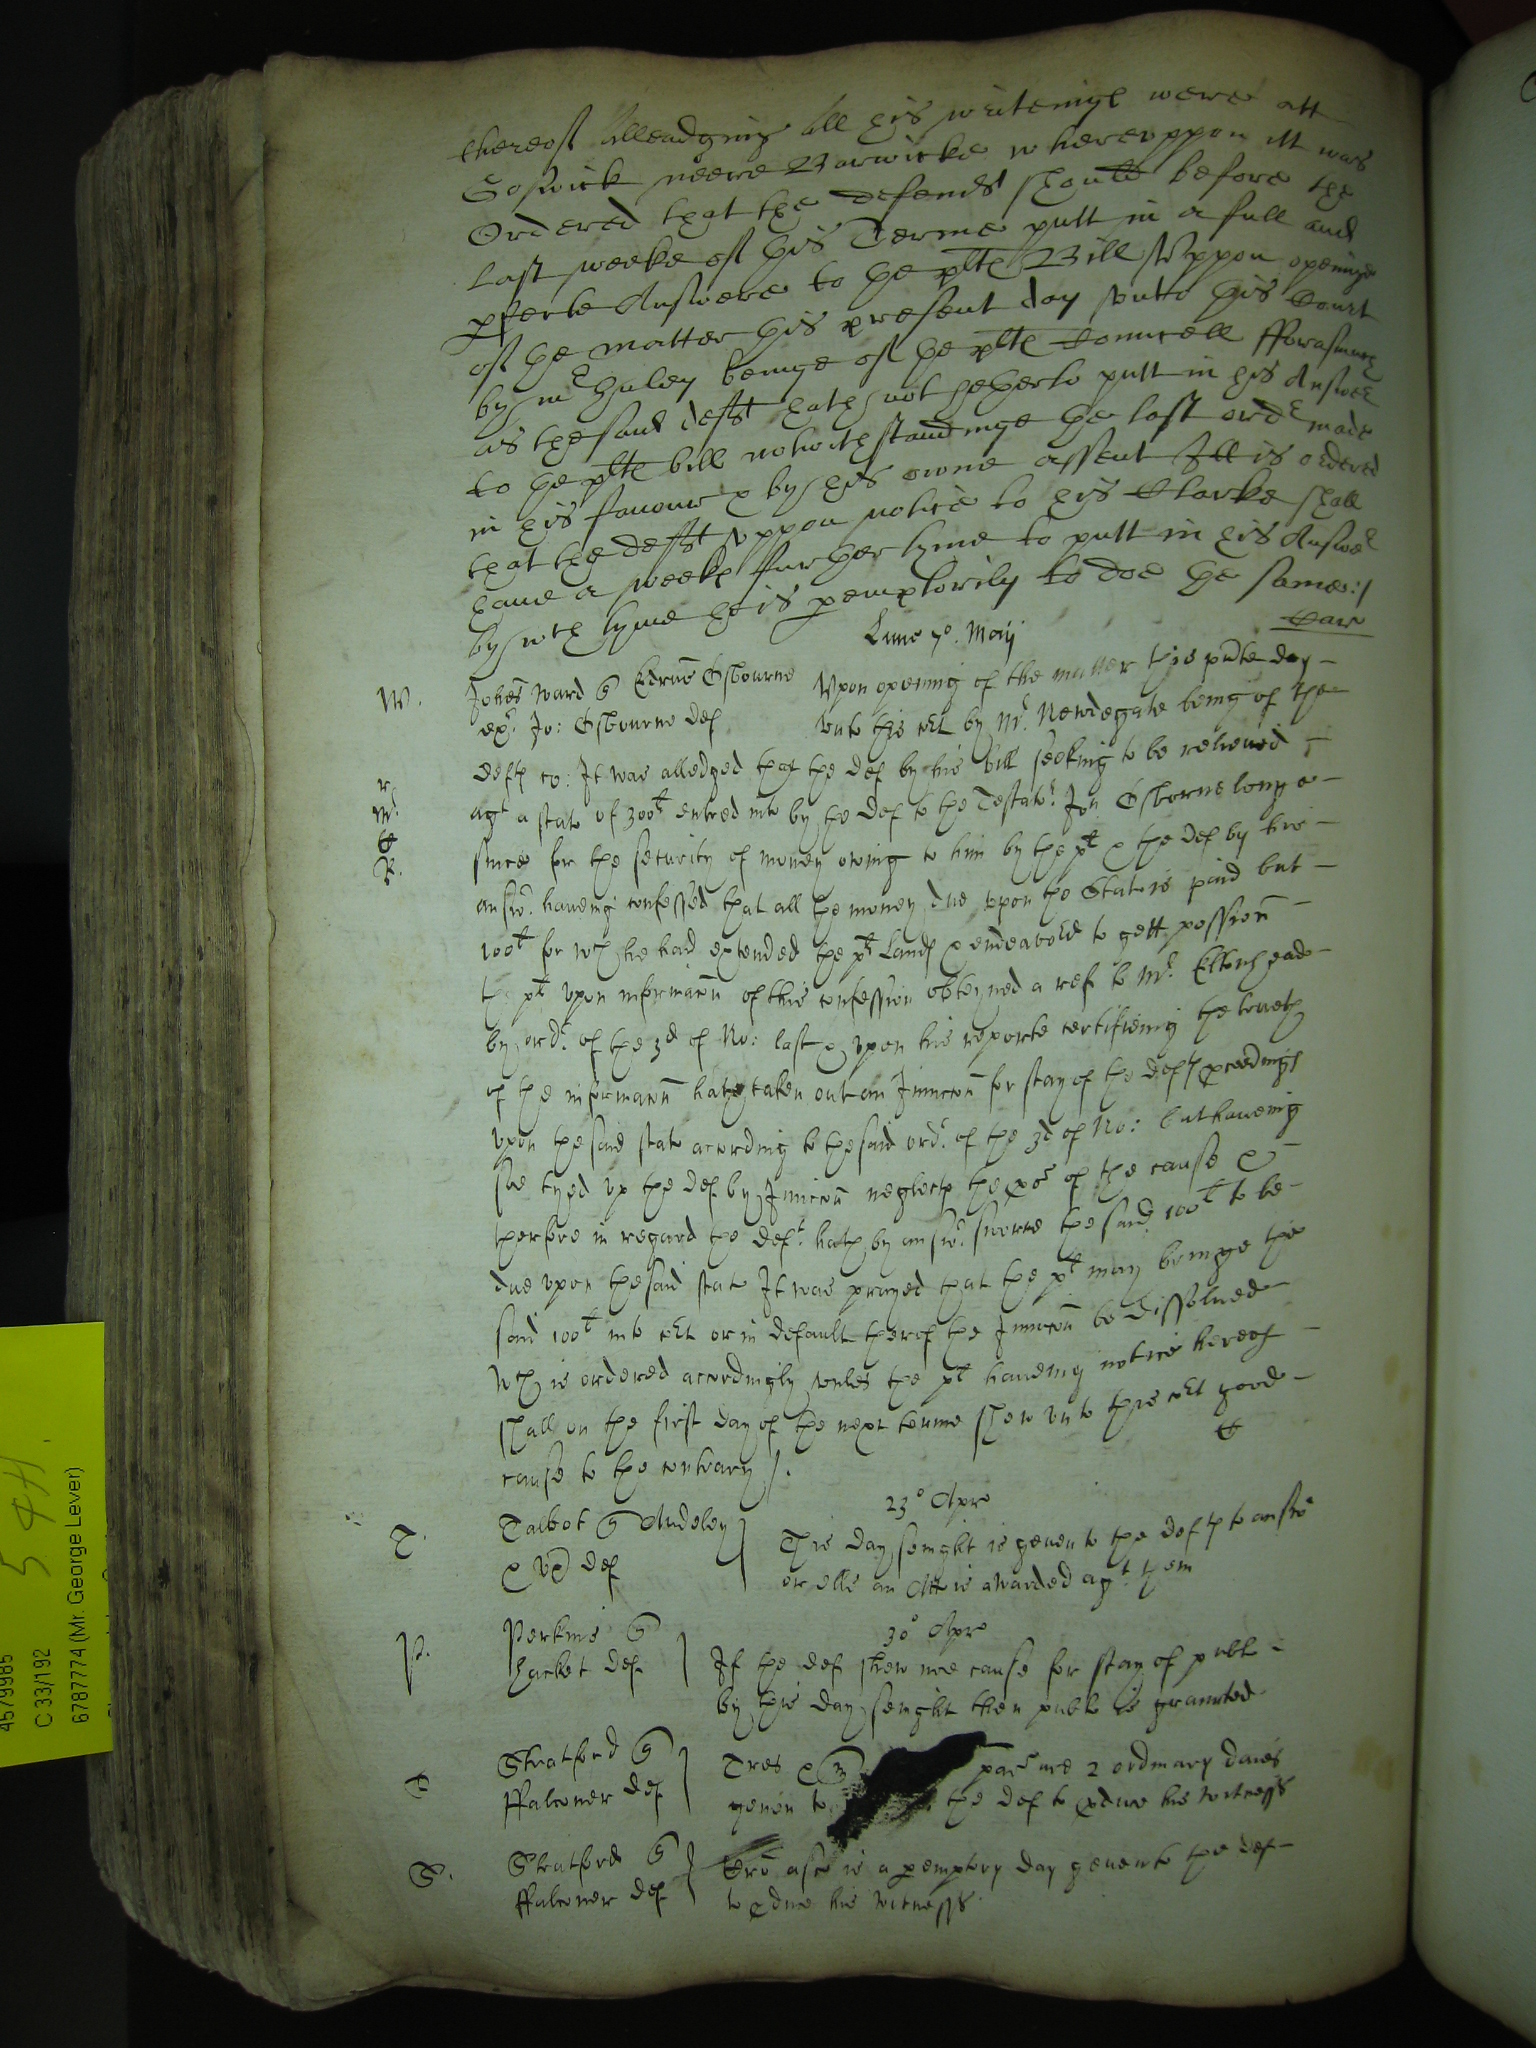 thereof Alleadging All his writeings were att
Goswick neere Barwicke whereuppon itt was
Ordered that the defendt should before the
last weeke of this Terme putt in a full and
pfecte Answere to the plts Bill Nowppon openinge
of the matter this present day unto this Court
by mr beinge of the plts Councell fforasmuch
as the said defft hath not hetherto putt in his Answer
to the plts bill notwithstandinge the last ordr made
in his favour & by his owne assent Itt is ordered
that the defft uppon notice to his Clarke shall
have a weeke further tyme to putt in his Answer
by wch tyme he is peremptorily to doe the same:/
Lune 7o. Maij
W. Johes Ward Edrus Osbourne Upon opening of the matter this pnte day
exr. Jo: Osbourne def unto this cort by Mr. Newdegate being of the
defts co: It was alledged that the def by his bill seeking to be releived
agt a stat of 300l entred into by the def to the Testator. Jon Osborne long
since for the security of money owing to him by the plt & the def by his
answr. haveing confessed that all the money due upon the Stat is paid but
100l for wch he had extended the plts Lands & endeavord to gett possion
the plt upon informacon of this confession obteyned a ref to Mr. Eltonhead
by ordr. of the 3d of No: last & upon his reporte certifieing the trueth
of the informacon hath taken out an Iniuccon for stay of the defts pceedings
upon the said stat according to the said ordr. of the 3d of No: but haveing
soe tyed up the def by Iniuccon neglects the of the cause &
therfore in regard the deft. hath by answr. sworne the said 100l to be
due upon the said stat It was prayed that the plt may bringe the
said 100l into cort or in default therof the Iniuccon be dissolved
wch is ordered accordingly unles the plt haveing notice hereof
shall on the first day of the next terme shew unto this cort good
cause to the contrary /.
23o Apr
T. Talbot Audeley This day senight is geven to the defts to answr
& ux def or ells an Att is awarded agt. them
30o Apr
P. Perkins If the def shew noe cause for stay of publ
Hacket def by this day senight then publ is graunted
Stratford 2 ordinary daies
ffalconer def geven to the def to pduce his witness
S. Stratford is a pemptory day geven to the def
ffalconer def to pduce his witness
5 44.
4579985
C 33/192
6787774 (Mr. George Lever)